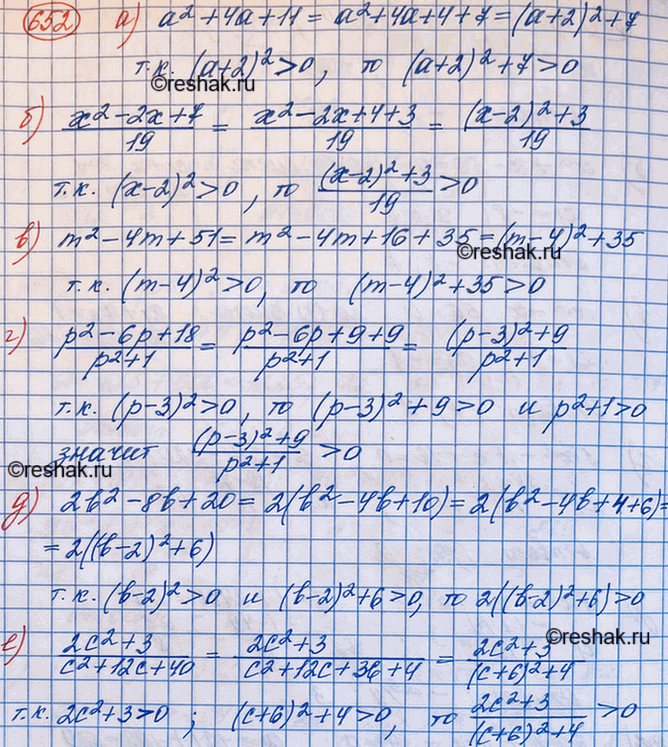 652 а) a² + 4a + 11 = a² + 4a + 4 + 7 = (a+2)² + 7
т.к. (a+2)² > 0, то (a+2)² + 7 > 0
©reshak.ru
б) (x² − 2x + 7)/19 = (x² − 2x + 4 + 3)/19 = ((x−2)² + 3)/19
т.к. (x−2)² > 0, то ((x−2)² + 3)/19 > 0
в) m² − 4m + 51 = m² − 4m + 16 + 35 = (m−4)² + 35
©reshak.ru
т.к. (m−4)² > 0, то (m−4)² + 35 > 0
г) (p² − 6p + 18)/(p² + 1) = (p² − 6p + 9 + 9)/(p² + 1) = ((p−3)² + 9)/(p² + 1)
т.к. (p−3)² > 0, то (p−3)² + 9 > 0 и p² + 1 > 0
значит ((p−3)² + 9)/(p² + 1) > 0
©reshak.ru
д) 2b² − 8b + 20 = 2(b² − 4b + 10) = 2(b² − 4b + 4 + 6) =
= 2((b−2)² + 6)
т.к. (b−2)² > 0 и (b−2)² + 6 > 0, то 2((b−2)² + 6) > 0
©reshak.ru
е) (2c² + 3)/(c² + 12c + 40) = (2c² + 3)/(c² + 12c + 36 + 4) = (2c² + 3)/((c+6)² + 4)
т.к. 2c² + 3 > 0 ; (c+6)² + 4 > 0, то (2c² + 3)/((c+6)² + 4) > 0
©reshak.ru